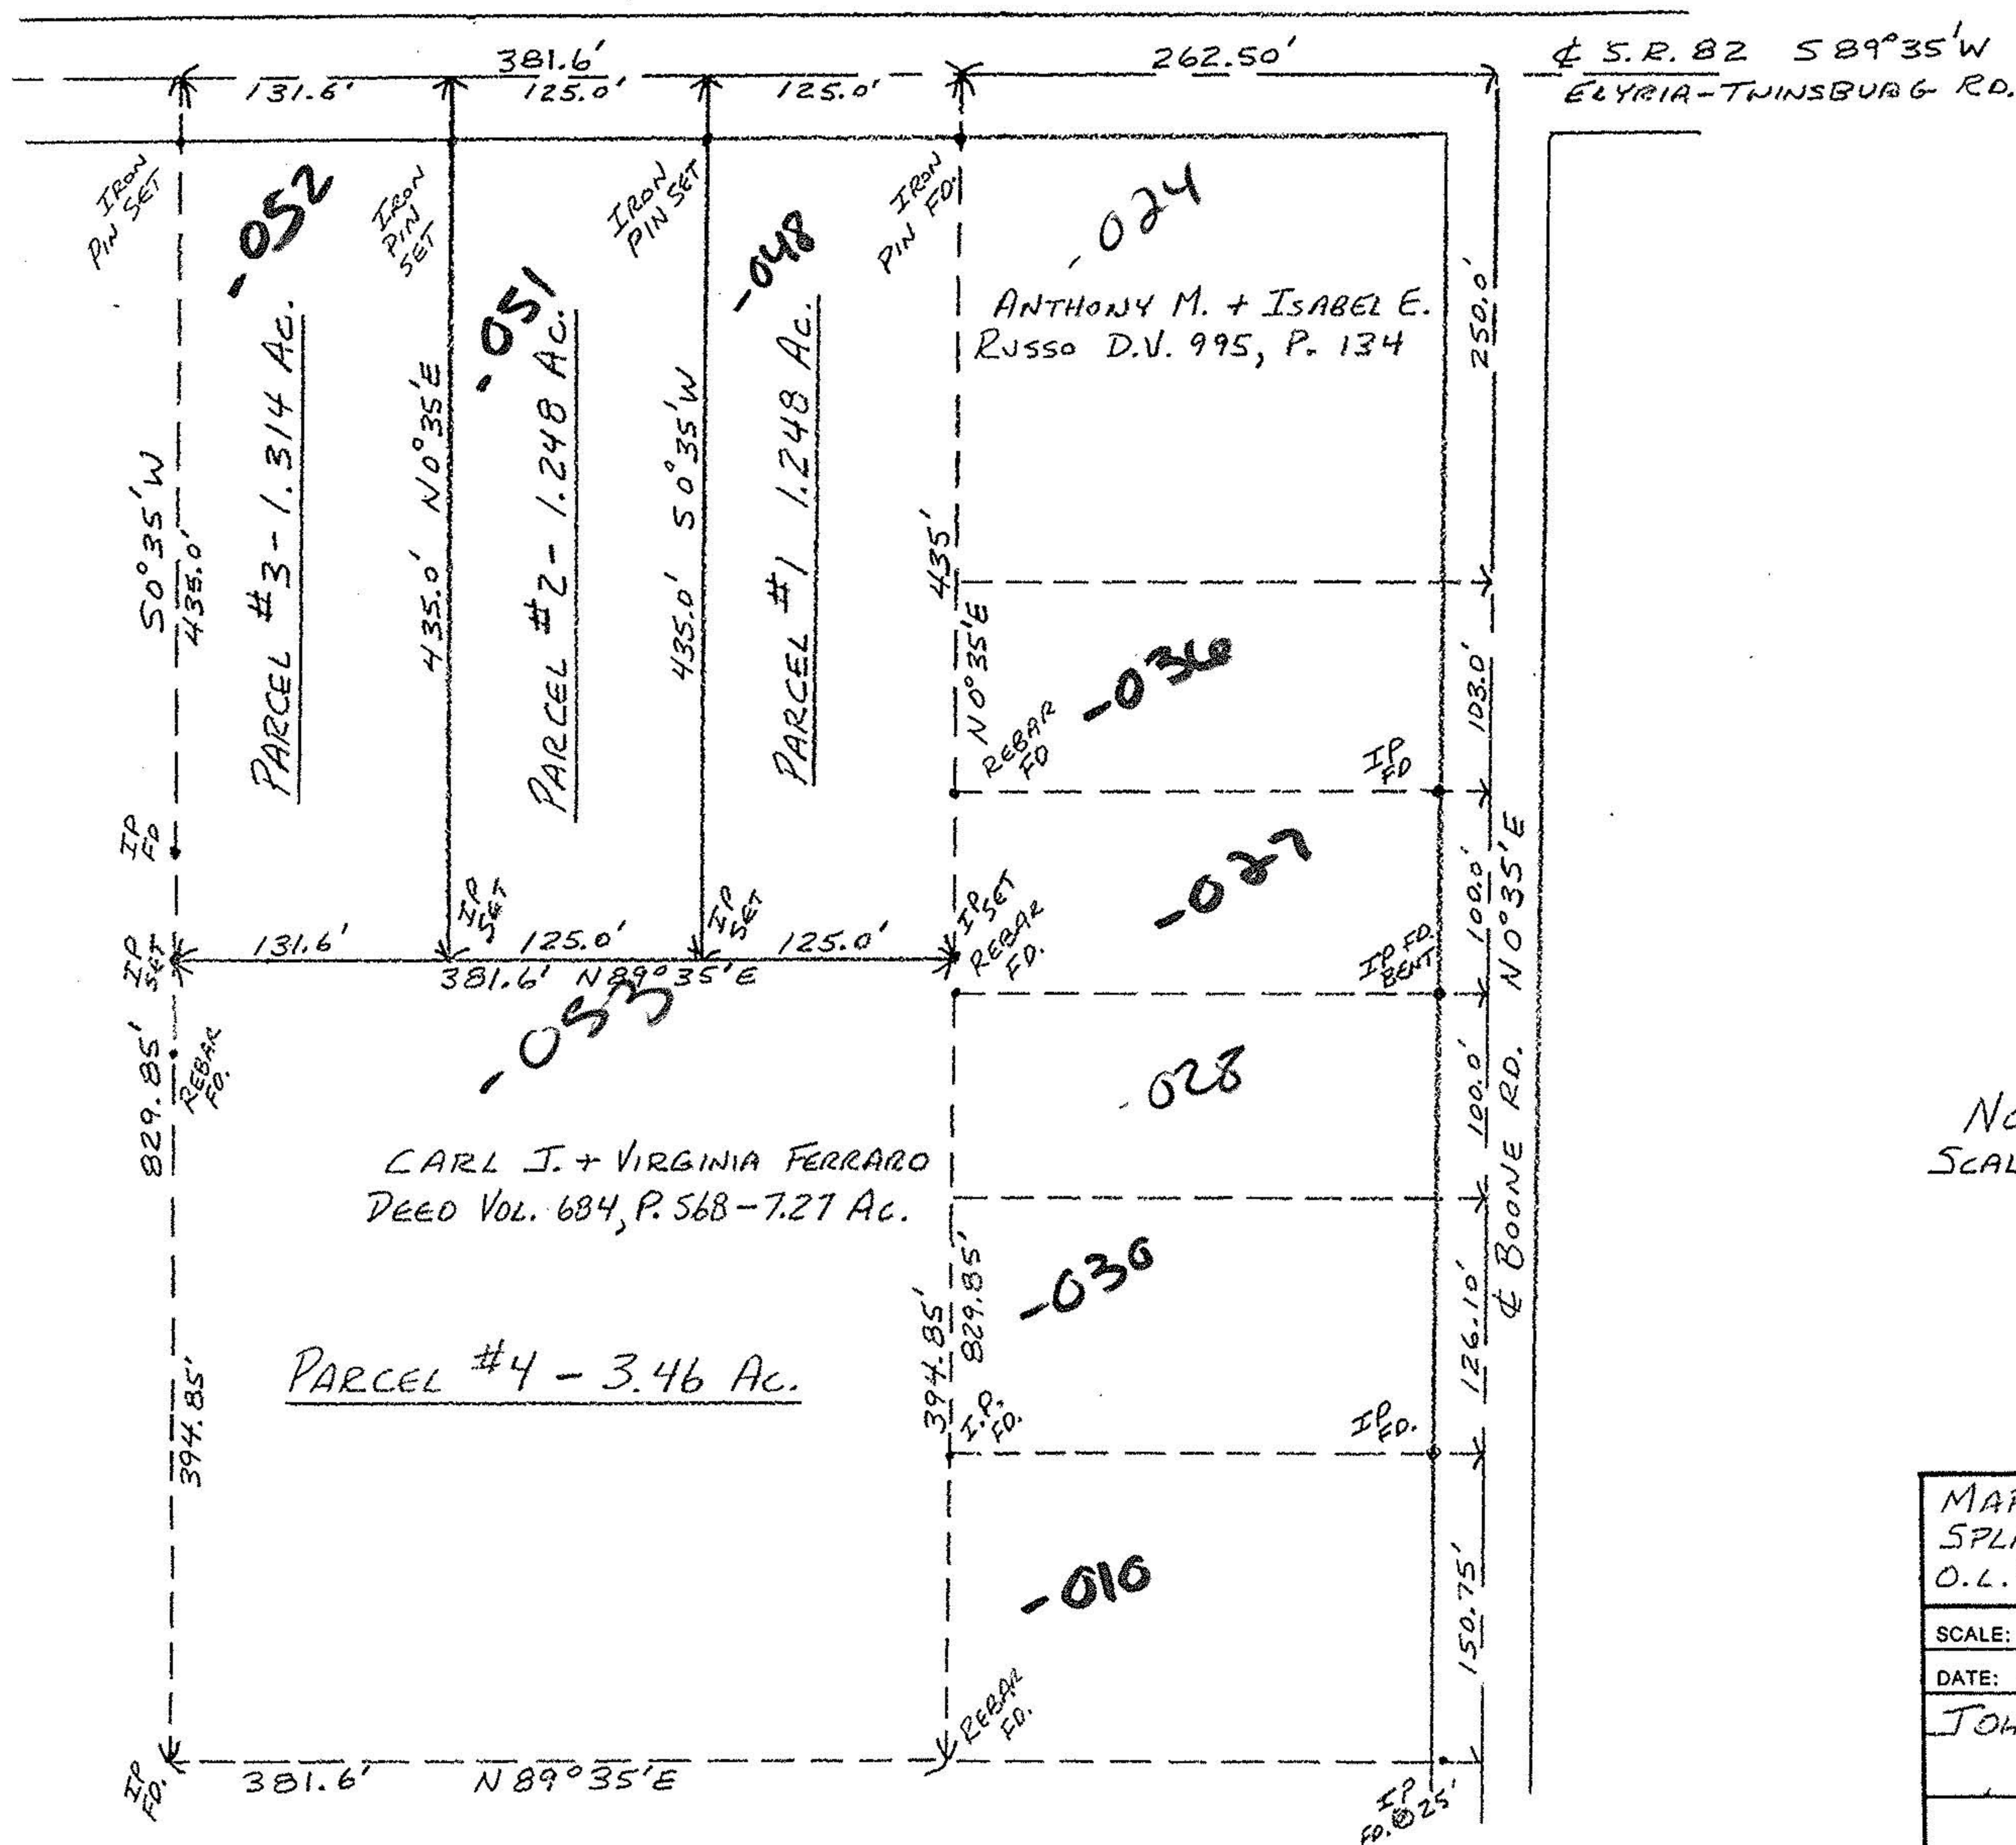 381.6'
262.50'
₵ S.R. 82 S 89°35'W
ELYRIA-TWINSBURG RD.
131.6'
125.0'
125.0'
IRON
PIN SET
-052
IRON
PIN
SET
IRON
PIN SET
-048
IRON
PIN FD.
-024
-051
ANTHONY M. + ISABEL E.
RUSSO D.V. 995, P. 134
250.0'
S0°35'W
435.0'
PARCEL #3 - 1.314 AC.
435.0' N0°35'E
PARCEL #2 - 1.248 AC.
435.0' S0°35'W
PARCEL #1 1.248 AC.
435'
N0°35'E
-036
103.0'
REBAR
FD
IP
FD
IP
FD
-027
100.0'
IP
SET
IP
SET
IP SET
REBAR
FD.
IP FD.
BENT
IP
SET
131.6'
125.0'
125.0'
381.6' N89°35'E
-053
829.85'
REBAR
FD.
028
100.0'
₵ BOONE RD. N0°35'E
CARL J. + VIRGINIA FERRARO
DEED VOL. 684, P. 568 - 7.27 AC.
SCAL
-030
126.10'
394.85'
829.85'
PARCEL #4 - 3.46 AC.
394.85'
I.P.
FD.
IP
FD.
-010
150.75'
REBAR
FD.
IP
FD.
381.6' N89°35'E
IP
FD. @ 25'
O.L.
SCALE:
DATE: